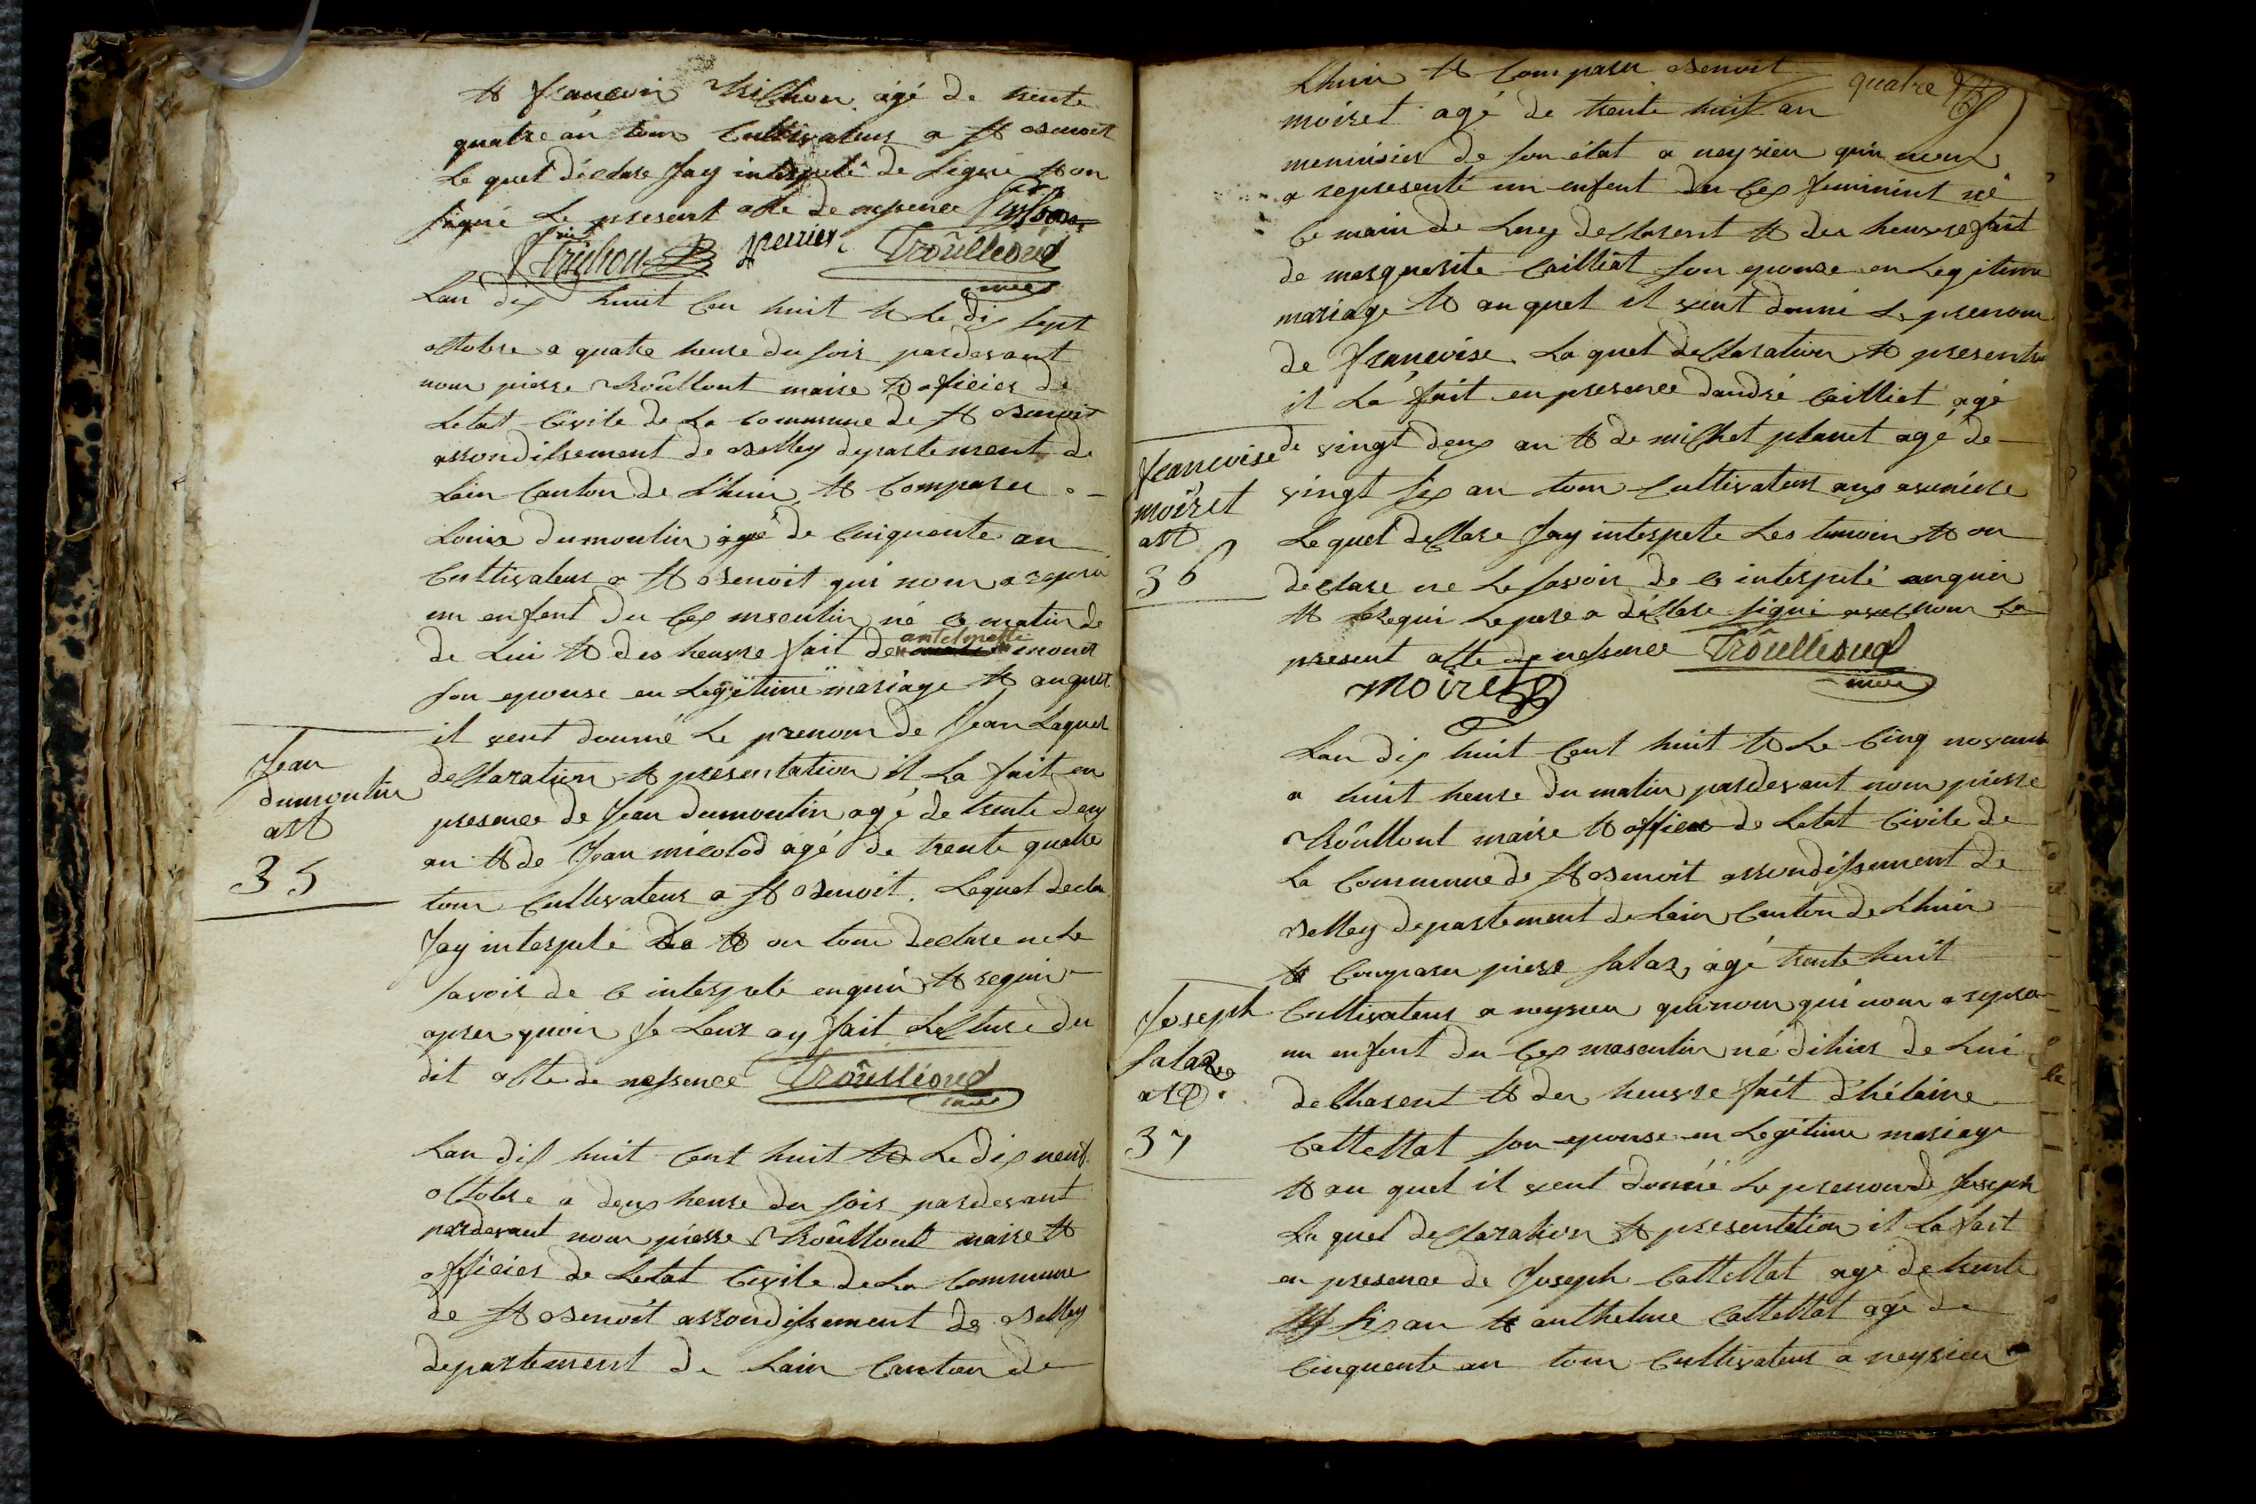 et francoin trichon agé de trente
quatre an tous cultivateur a st benoit
le quel déclare jay interpelé de signé et on
signé le present acte de
trichon perrier Troûlleoud
maire
Lan dix huit cen huit et le dix sept
octobre a quatre heure du soir pardevant
nous pierre Troûllout maire et oficier de
letat civile de la commune de st benoit
arrondissement de belley departement de
lain canton de Lhuis et comparu
Louis dumoulin agé de cinquante an
cultivateur a st benoit qui nous a repre
un enfent du cex mseulin né ce matin de
de lui et des heuvre fait de antelmette monet
son epouse en legitime mariage et auquel
il veut donné le prenom de jean laquel
Jean
dumoulin
35
declaration et presentation il la fait en
presence de jean dumoulin agé de trente deux
an et de jean micolod agé de trente quatre
tous cultivateur a st benoit. lequel decla
jay interpelé et on tous declare ne le
savoir de ce interpelé enquir et requir
apres quoir je leur ay fait lecture du
dit acte de nessence Troûlleoud
maire
Lan dix huit cent huit et le dix neuf
octobre a deux heure du soir pardevant
pardevant nous pierre Troûllout maire et
officier de letat civile de la commune
de st benoit arrondissement de belley
departement de lain canton de
quatre
Lhuis et comparu benoit
moiret agé de trente huit an
menuisier de son état a neyrieu qui nous
a representé un enfent du cex feminint né
ce main de luy declarent et des heuvre fait
de marguerite cailliat son epouse en legitime
mariage et au quel il veut donné le prenom
de francoise la quel declaration et presenta
il la fait en presence dandré cailliet agé
de vingt deux an et de michel planet agé de
francoise
moiret
36
vingt six an tous cultivateur aux
Lequel declare jay interpele les temoin et on
declare ne le savoir de ce interpelé enquir
et requi le pere a déclare signé avec nous le
present acte de nessence Troûlleoud
maire
moiret
Lan dix huit cent huit et le cinq novam
a huit heure du matin pardevant nous pierre
Troûllout maire et officier de letat civile de
la commune de st benoit arrondissement de
belley departement de lain canton de Lhuis
et comparu piere salaz agé trente huit
Joseph
salaz
37
cultivateur a neyrieu qui nous qui nous a repre
un enfent du cex masculin né dihier de lui
declarent et des heuvre fait d'hélaine
cattettat son epouse en legitime mariage
et au quel il veut donné le prenom de joseph
la quel declaration et presentation il la fait
en presence de joseph cattettat agé de trente
six an et anthelme cattettat agé de
cinquente an tous cultivateur a neyrieu